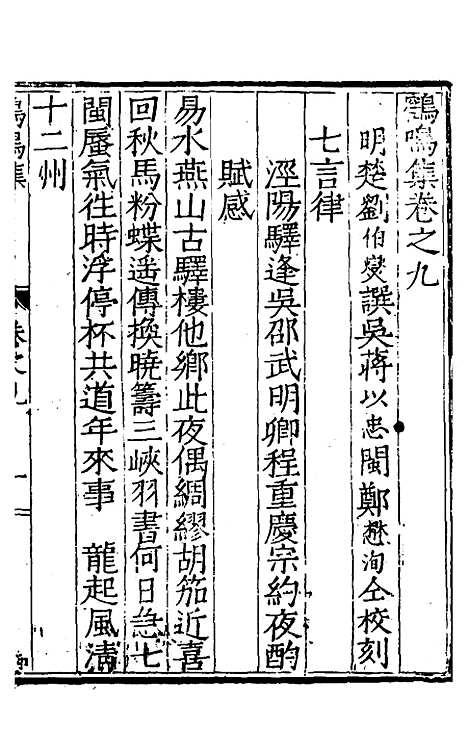 鶚鳴集卷之九
明楚劉伯燮譔吳蔣以忠閩鄭懋洵仝校刻
七言律
涇陽驛逢吳邵武明卿程重慶宗約夜酌
賦感
易水燕山古驛樓他鄉此夜偶綢繆胡笳近喜
回秋馬粉蝶遥傳換曉籌三峽羽書何日急七
閩蜃氣往時浮停杯共道年來事 龍起風清
十二州
鳴集
卷之九